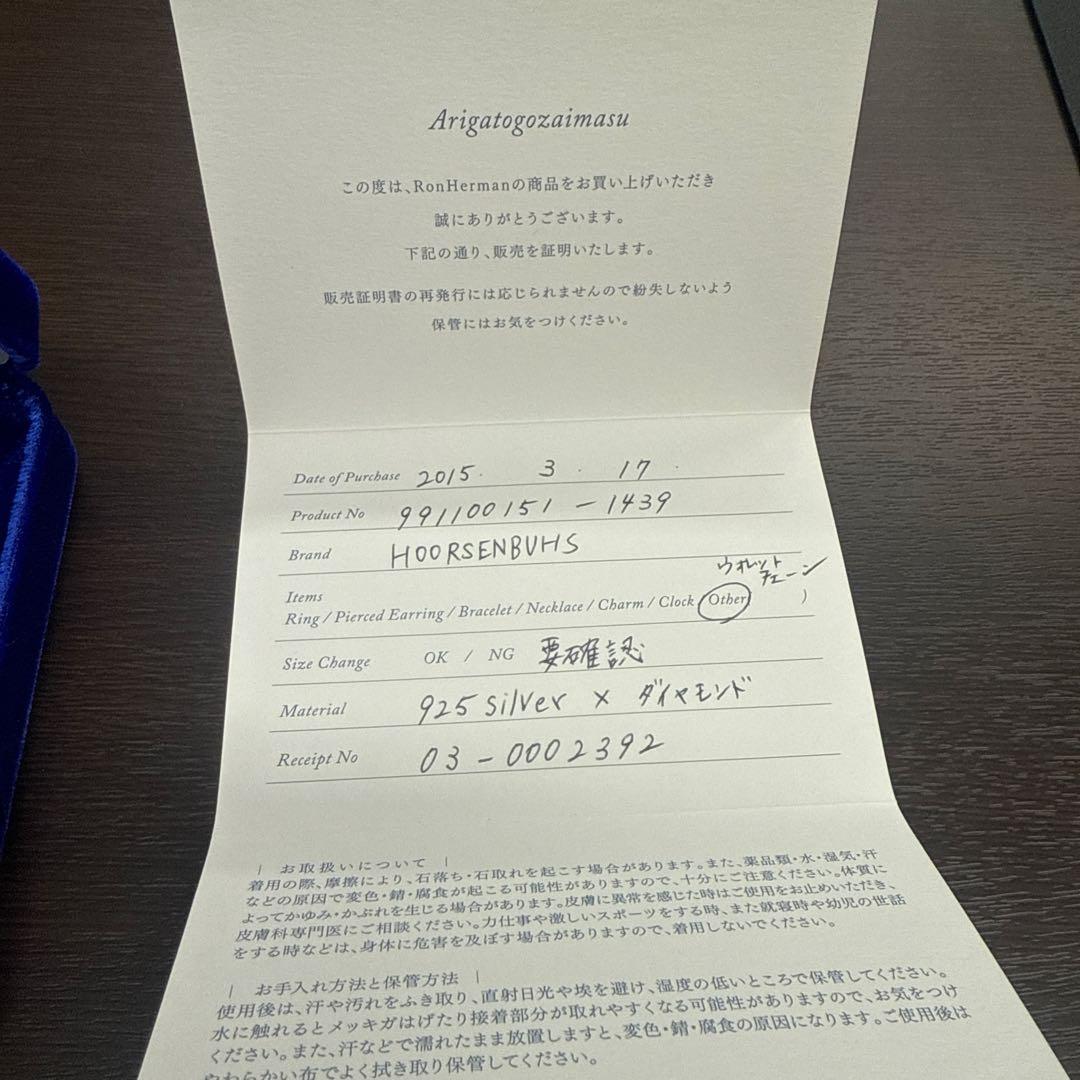 Arigatogozaimasu
この度は、RonHermanの商品をお買い上げいただき
誠にありがとうございます。
下記の通り、販売を証明いたします。
販売証明書の再発行には応じられませんので紛失しないよう
保管にはお気をつけください。
Date of Purchase 2015. 3. 17.
Product No 991100151-1439
Brand HOORSENBUHS
ウォレット
チェーン
Items
Ring / Pierced Earring / Bracelet / Necklace / Charm / Clock Other )
Size Change OK / NG 要確認
Material 925 silver × ダイヤモンド
Receipt No 03-0002392
| お取扱いについて |
着用の際、摩擦により、石落ち・石取れを起こす場合があります。また、薬品類・水・湿気・汗
などの原因で変色・錆・腐食が起こる可能性がありますので、十分にご注意ください。体質に
よってかゆみ・かぶれを生じる場合があります。皮膚に異常を感じた時はご使用をお止めいただき、
皮膚科専門医にご相談ください。力仕事や激しいスポーツをする時、また就寝時や幼児の世話
をする時などは、身体に危害を及ぼす場合がありますので、着用しないでください。
| お手入れ方法と保管方法 |
使用後は、汗や汚れをふき取り、直射日光や埃を避け、湿度の低いところで保管してください。
水に触れるとメッキがはげたり接着部分が取れやすくなる可能性がありますので、お気をつけ
ください。また、汗などで濡れたまま放置しますと、変色・錆・腐食の原因になります。ご使用後は
やわらかい布でよく拭き取り保管してください。